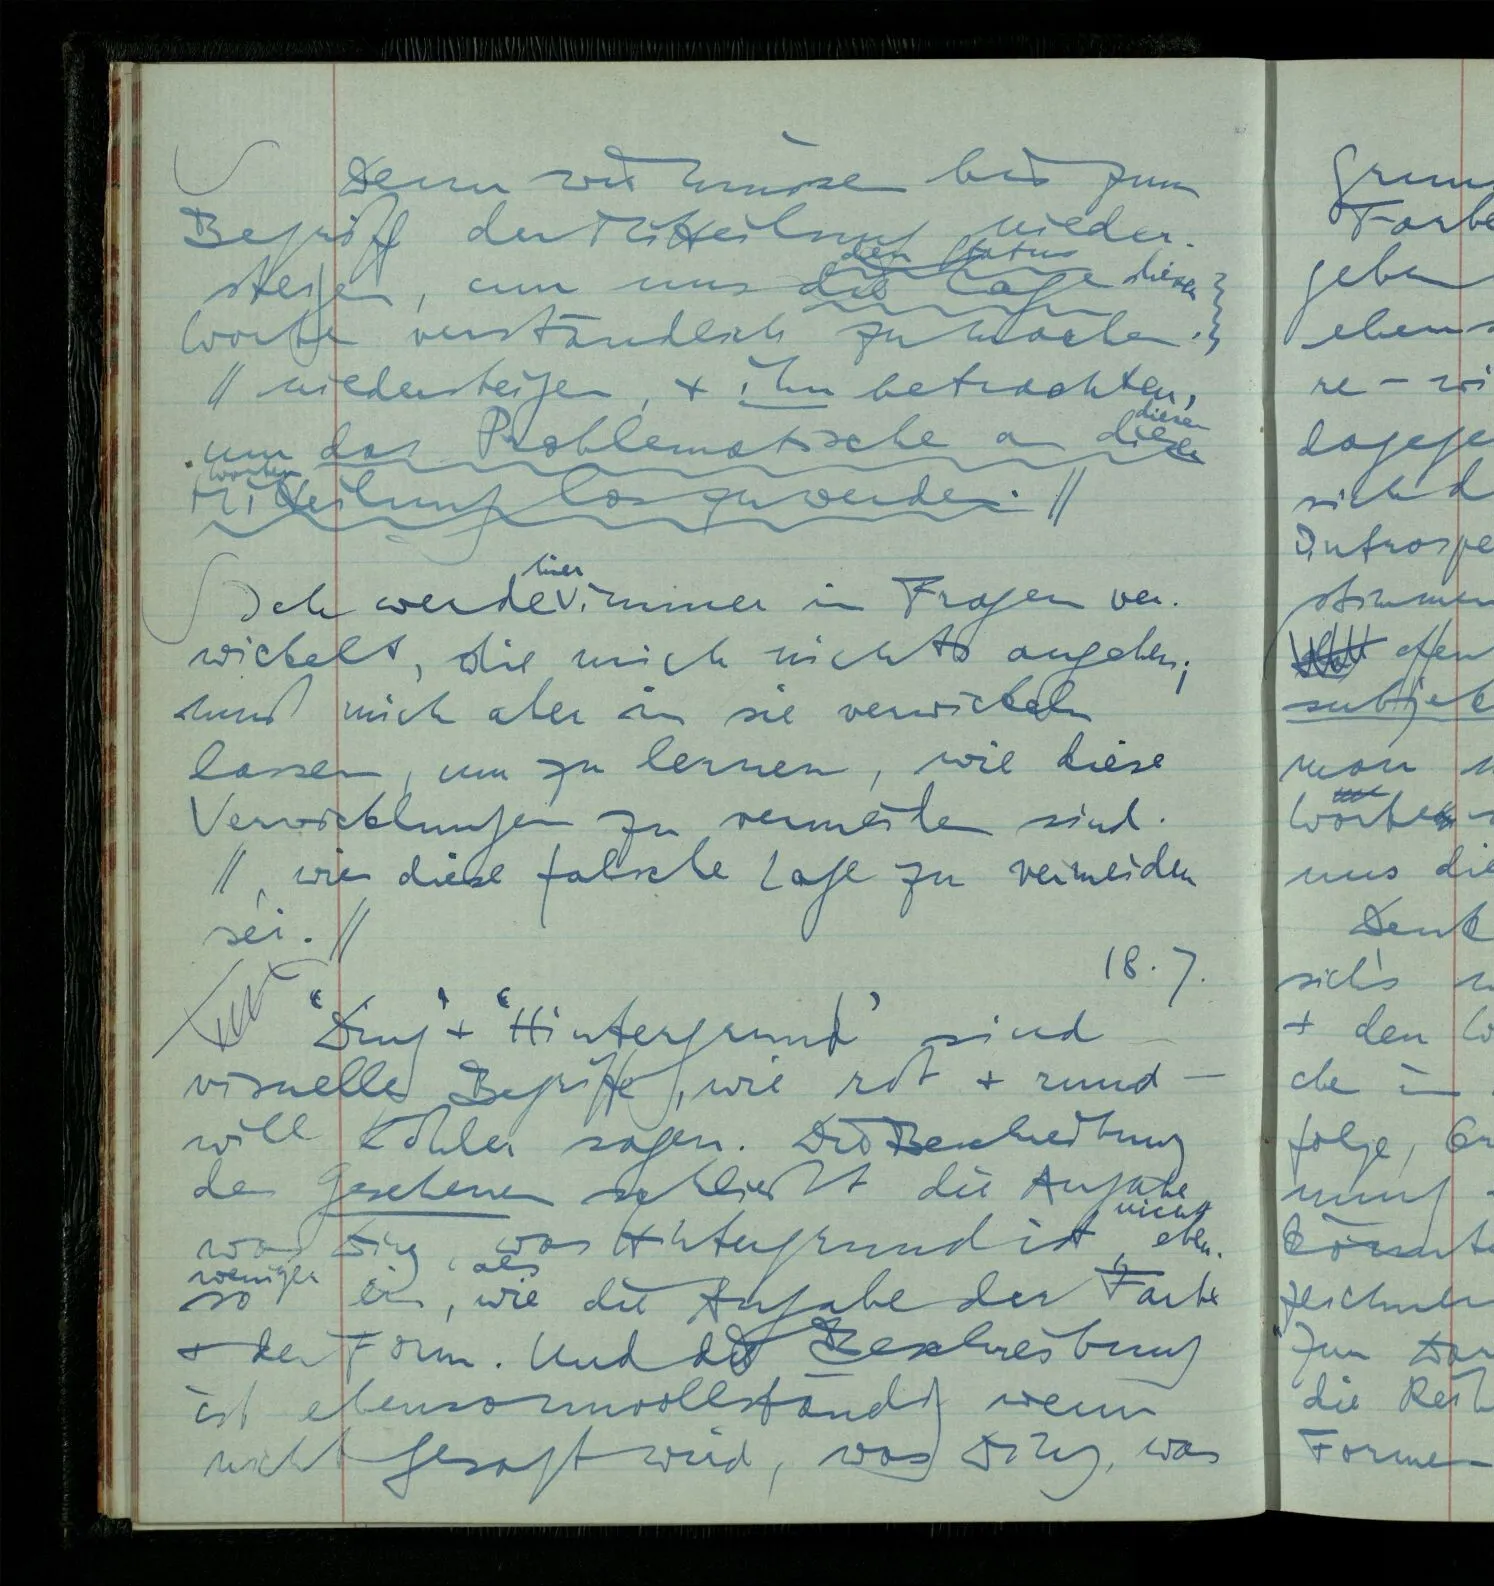 Denn wir müssen bis zum
Begriff der Mitteilung nieder-
den Status
steigen, um uns die Lage dieser
Worte verständlich zu machen.
// niedersteigen, + ihn betrachten,
diesen
um das Problematische an dieser
Worten
Mitteilung los zu werden. //
hier
Ich werde immer in Fragen ver-
wickelt, die mich nichts angehen;
muß mich aber in sie verwickeln
lassen, um zu lernen, wie diese
Verwicklungen zu vermeiden sind.
//, wie diese falsche Lage zu vermeiden
sei. //
18.7.
‘Ding’ + ‘Hintergrund’ sind
visuelle Begriffe, wie rot + rund –
will Köhler sagen. Die Beschreibung
des Gesehenen schließt die Angabe
nicht
was Ding, was Hintergrund ist, eben-
weniger als
so ein, wie die Angabe der Farbe
+ der Form. Und die Beschreibung
ist ebenso unvollständig wenn
nicht gesagt wird, was Ding, was
Grun
Farbe
geben
ebens
re – wi
dageg
sich d
Introspe
stimmen
offen
subjek
man
Worte
uns die
Denk
sich's
+ den
che in
folge,
nung
könnte
zeichnen
Zur
die
Formen